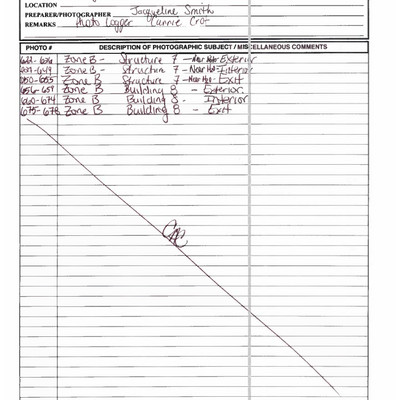 LOCATION
PREPARER/PHOTOGRAPHER Jacqueline Smith
REMARKS Photo Logger Carrie
PHOTO # DESCRIPTION OF PHOTOGRAPHIC SUBJECT / MISCELLANEOUS COMMENTS
Zone B - Structure 7 - Near Hse Exterior
Zone B - Structure 7 - Near Hse Interior
650-655 Zone B Structure 7 - Near Hse - Exit
656-659 Zone B Building 8 - Exterior
660-674 Zone B Building 8 - Interior
675-678 Zone B Building 8 - Exit